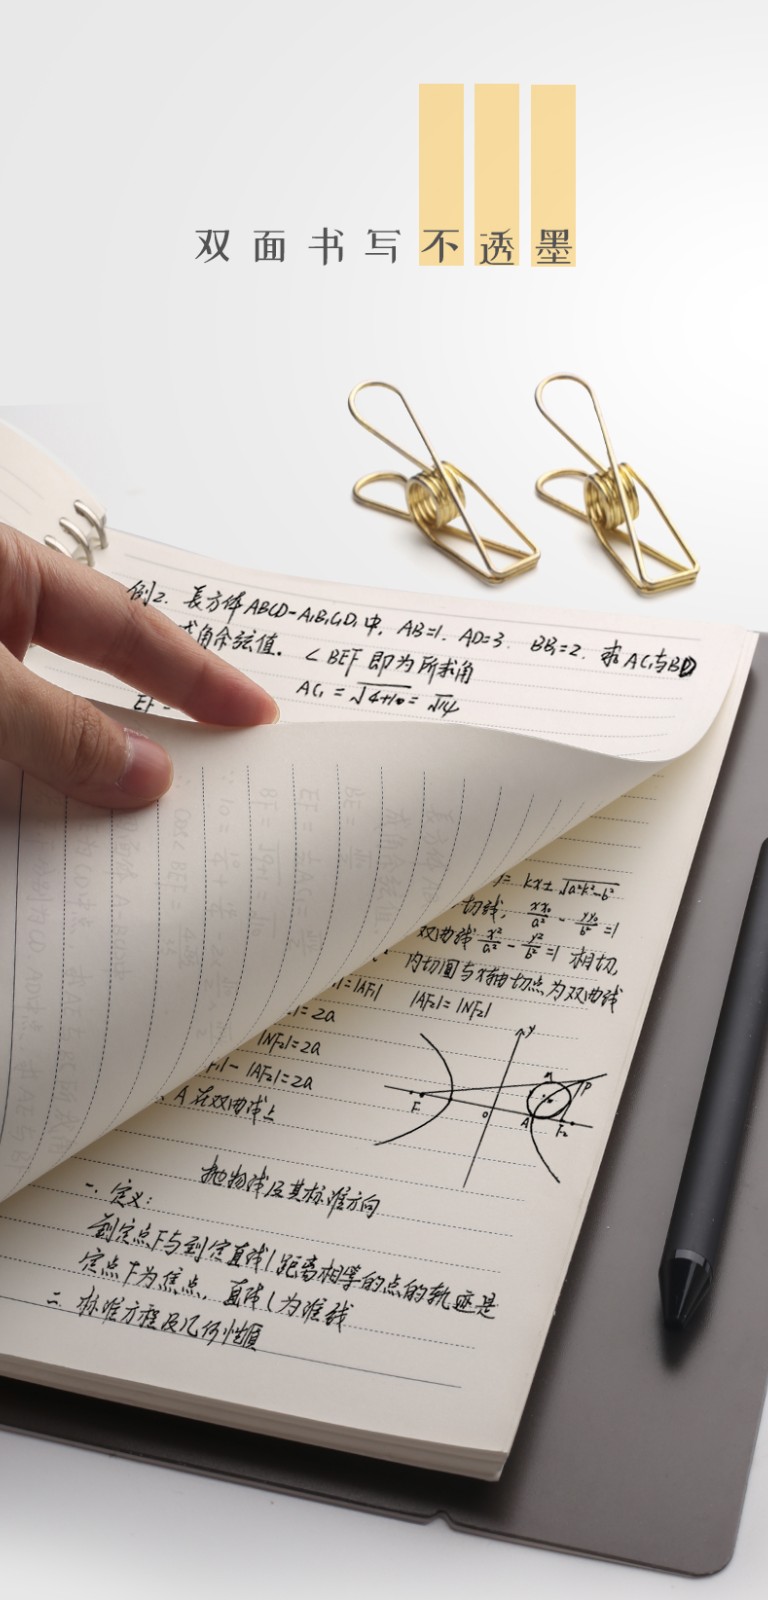 双面书写不透墨
例2. 長方体ABCD-A₁B₁C₁D₁中, AB=1. AD=3. BB₁=2. 求AC₁与BD
求角余弦值. ∠BEF 即为所求角
AC₁ = √4+10 = √14
EF =
= kx± √a²k²-b²
切线, xx₀/a² - yy₀/b² =1
双曲线 x²/a² - y²/b² =1 相切
内切圆与x轴切点为双曲线
=|AF₁| |AF₂|=|NF₂|
|=2a
|NF₂|=2a
F₁|-|AF₂|=2a
A在双曲线上
y
P
F₁
o
A
F₂
抛物线及其标准方向
一. 定义:
到定点F与到定直线l距离相等的点的轨迹是
定点F为焦点, 直线l为准线
二. 标准方程及几何性质